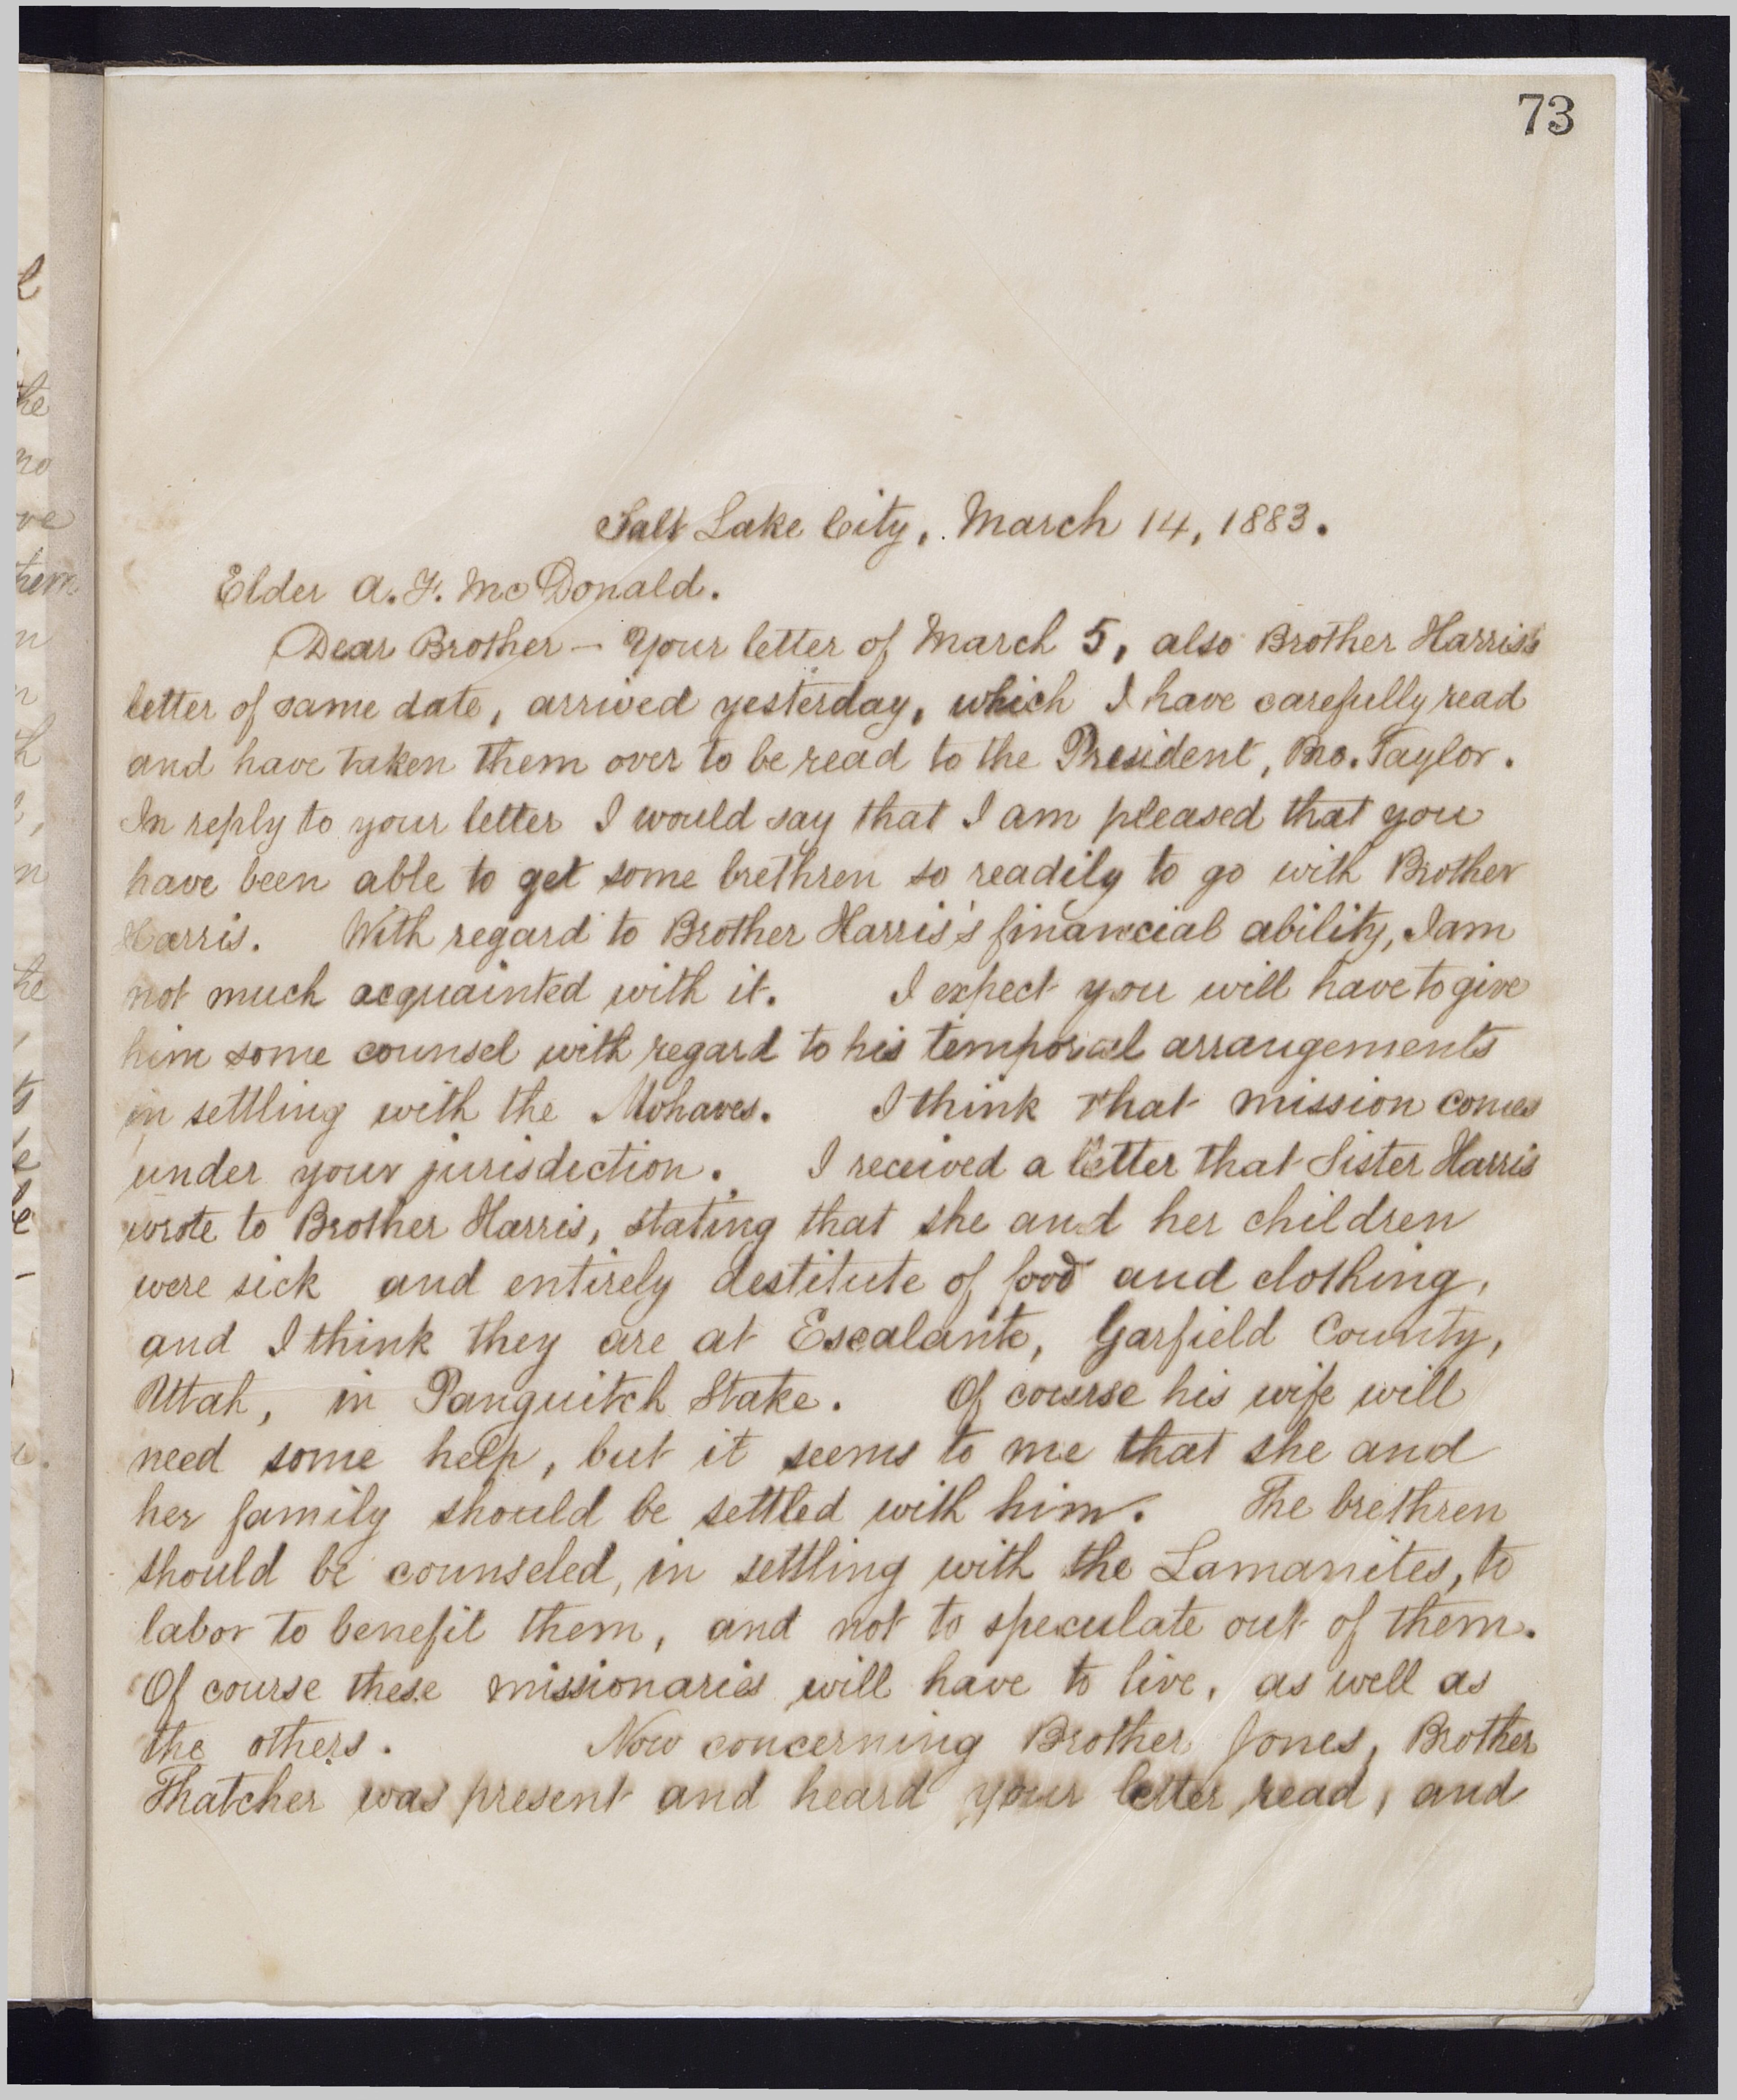 73
Salt Lake City, March 14, 1883.
Elder A. F. McDonald.
Dear Brother — Your letter of March 5, also Brother Harris's
letter of same date, arrived yesterday, which I have carefully read
and have taken them over to be read to the President, Bro. Taylor.
In reply to your letter I would say that I am pleased that you
have been able to get some brethren so readily to go with Brother
Harris. With regard to Brother Harris's financial ability, I am
not much acquainted with it. I expect you will have to give
him some counsel with regard to his temporal arrangements
in settling with the Mohaves. I think that mission comes
under your jurisdiction. I received a letter that Sister Harris
wrote to Brother Harris, stating that she and her children
were sick and entirely destitute of food and clothing,
and I think they are at Escalante, Garfield County,
Utah, in Panguitch Stake. Of course his wife will
need some help, but it seems to me that she and
her family should be settled with him. The brethren
should be counseled, in settling with the Lamanites, to
labor to benefit them, and not to speculate out of them.
Of course these missionaries will have to live, as well as
the others. Now concerning Brother Jones, Brother
Thatcher was present and heard your letter read, and